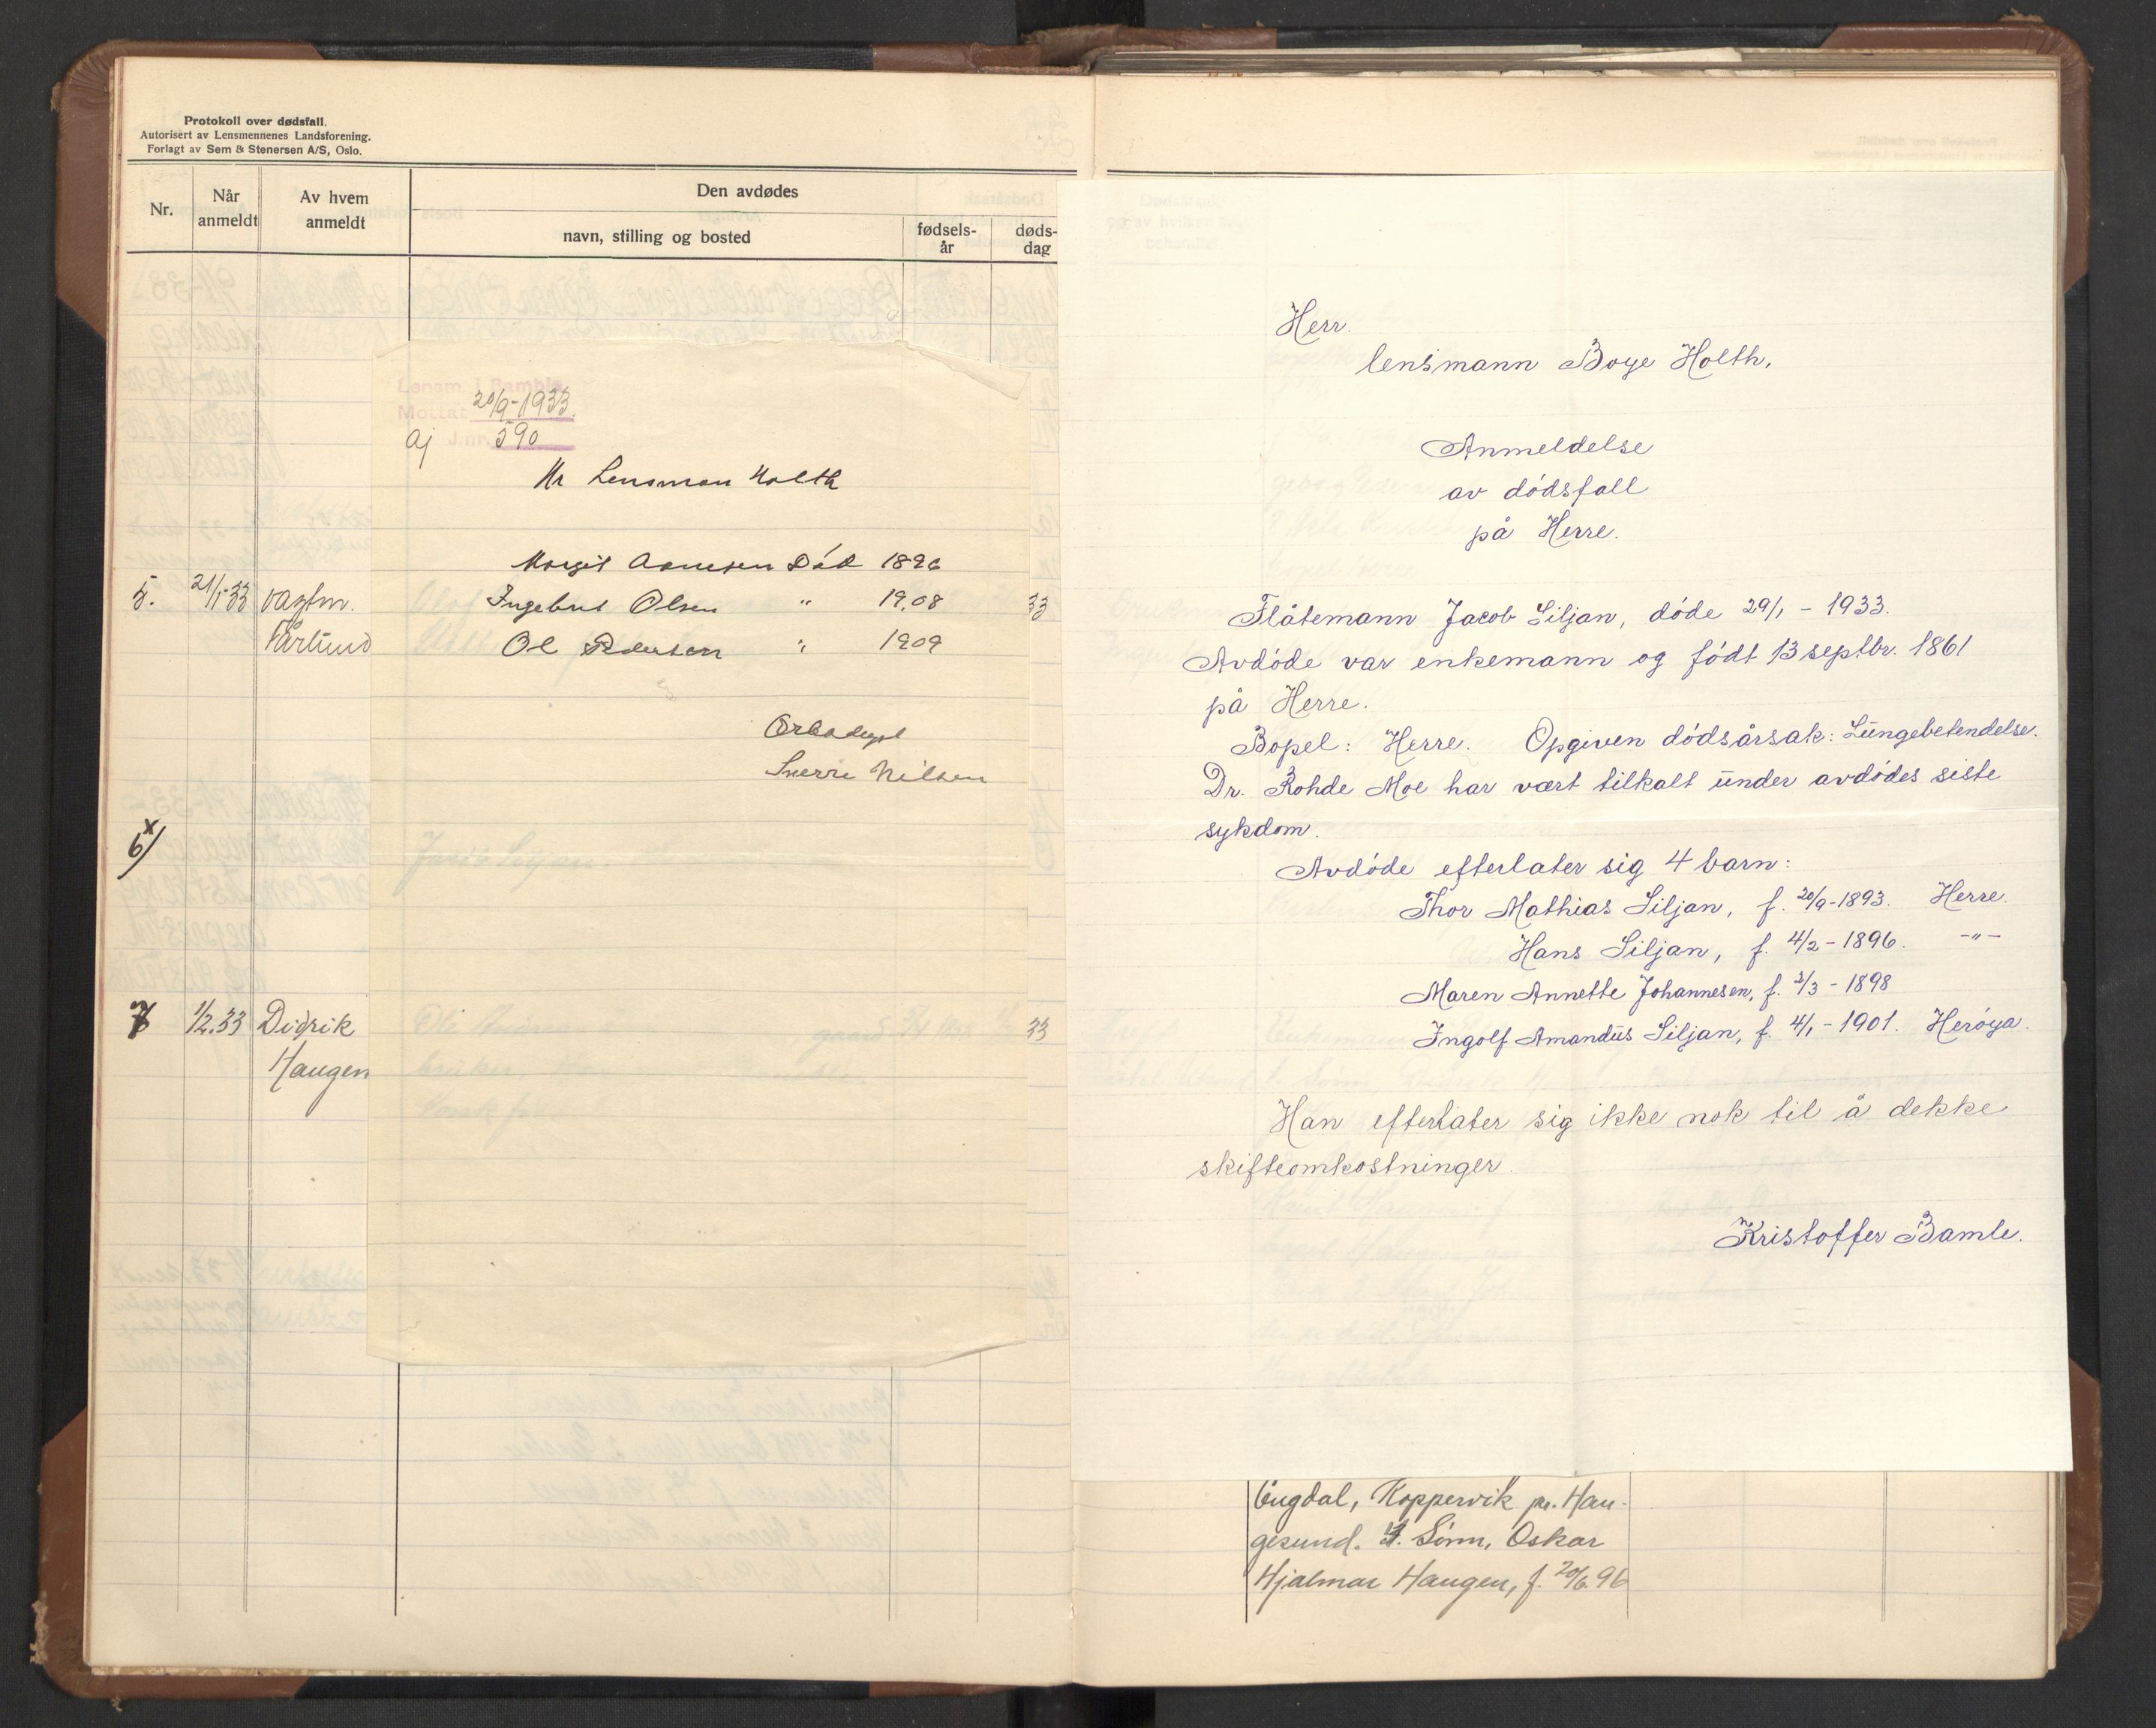 Protokoll over dødsfall.
Autorisert av Lensmennenes Landsforening.
Forlagt av Sem & Stenersen A/S, Oslo.
Nr.
Når anmeldt
Av hvem anmeldt
Den avdødes
navn, stilling og bosted
fødsels-år
døds-dag
5. 21/1-33 vagtm. 33
6)
7 1/2.33 Didrik 33
Haugen
Lensm. i Bamble
Mottat 20/9-1933.
aj J.nr. 590
Hr Lensman Holth
Margit Død 1896
Ingebret Olsen " 19.08
Ol Pedersen " 1909
Sverre Nilsen
Jacob Siljan.
Herr.
lensmann Boye Holth.
Anmeldelse
av dödsfall
på Herre.
Flåtemann Jacob Siljan, döde 29/1 - 1933.
Avdöde var enkemann og födt 13 septbr. 1861
på Herre.
Bopel: Herre. Opgiven dödsårsak: Lungebetendelse.
Dr. Rohde Moe har vært tilkalt under avdödes siste
sykdom.
Avdöde efterlater sig 4 barn:
Thor Mathias Siljan, f. 20/9-1893. Herre.
Hans Siljan, f. 4/2 - 1896. -"-
Maren Annette Johannesen, f. 2/3 - 1898
Ingolf Amandus Siljan, f. 4/1 - 1901. Heröya.
Han efterlater sig ikke nok til å dekke
skifteomkostninger.
Kristoffer Bamle.
Engdal, Koppervik pr. Hau-
gesund. 4. Sönn, Oskar
Hjalmar Haugen, f. 20/6.96